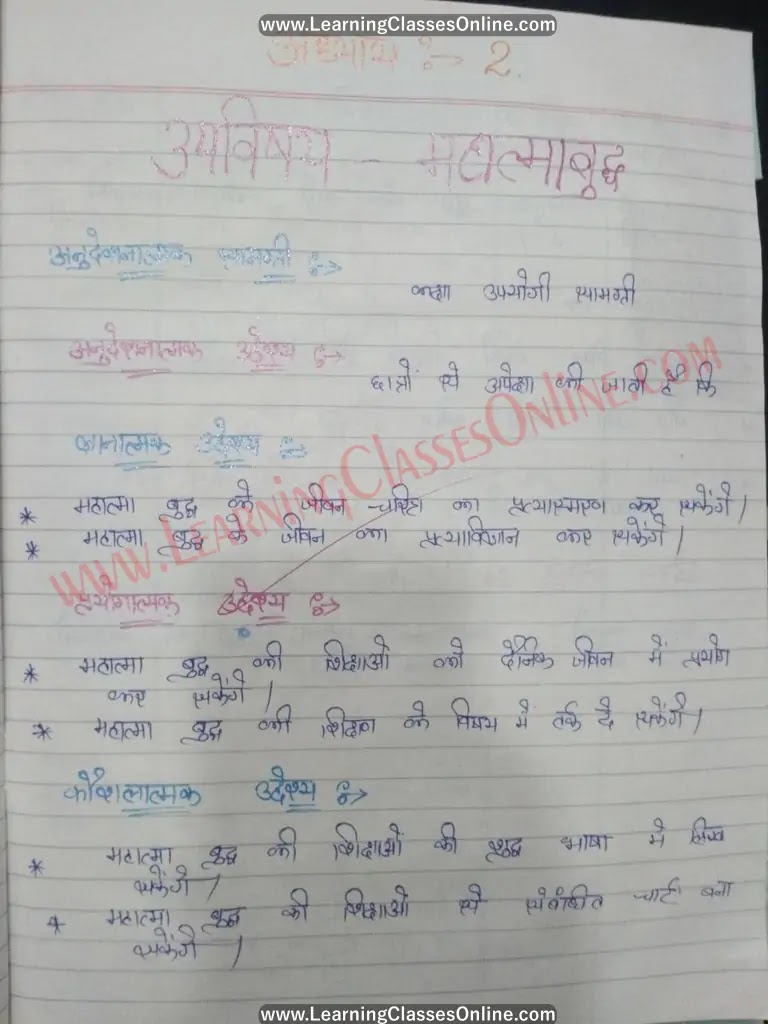 www.LearningClassesOnline.com
अध्याय :- 2.
उपविषय - महात्मा बुद्ध
अनुदेशनात्मक सामग्री :->
कक्षा उपयोगी सामग्री
अनुदेशनात्मक उद्देश्य :->
छात्रों से अपेक्षा की जाती है कि
ज्ञानात्मक उद्देश्य :-
* महात्मा बुद्ध के जीवन चरित्र का प्रत्यास्मरण कर सकेंगे।
* महात्मा बुद्ध के जीवन का प्रत्याभिज्ञान कर सकेंगे।
www.LearningClassesOnline.com
प्रयोगात्मक उद्देश्य :->
* महात्मा बुद्ध की शिक्षाओं को दैनिक जीवन में प्रयोग
कर सकेंगे।
* महात्मा बुद्ध की शिक्षा के विषय में तर्क दे सकेंगे।
कौशलात्मक उद्देश्य :->
* महात्मा बुद्ध की शिक्षाओं को शुद्ध भाषा में लिख
सकेंगे।
* महात्मा बुद्ध की शिक्षाओं से संबंधित चार्ट बना
सकेंगे।
www.LearningClassesOnline.com